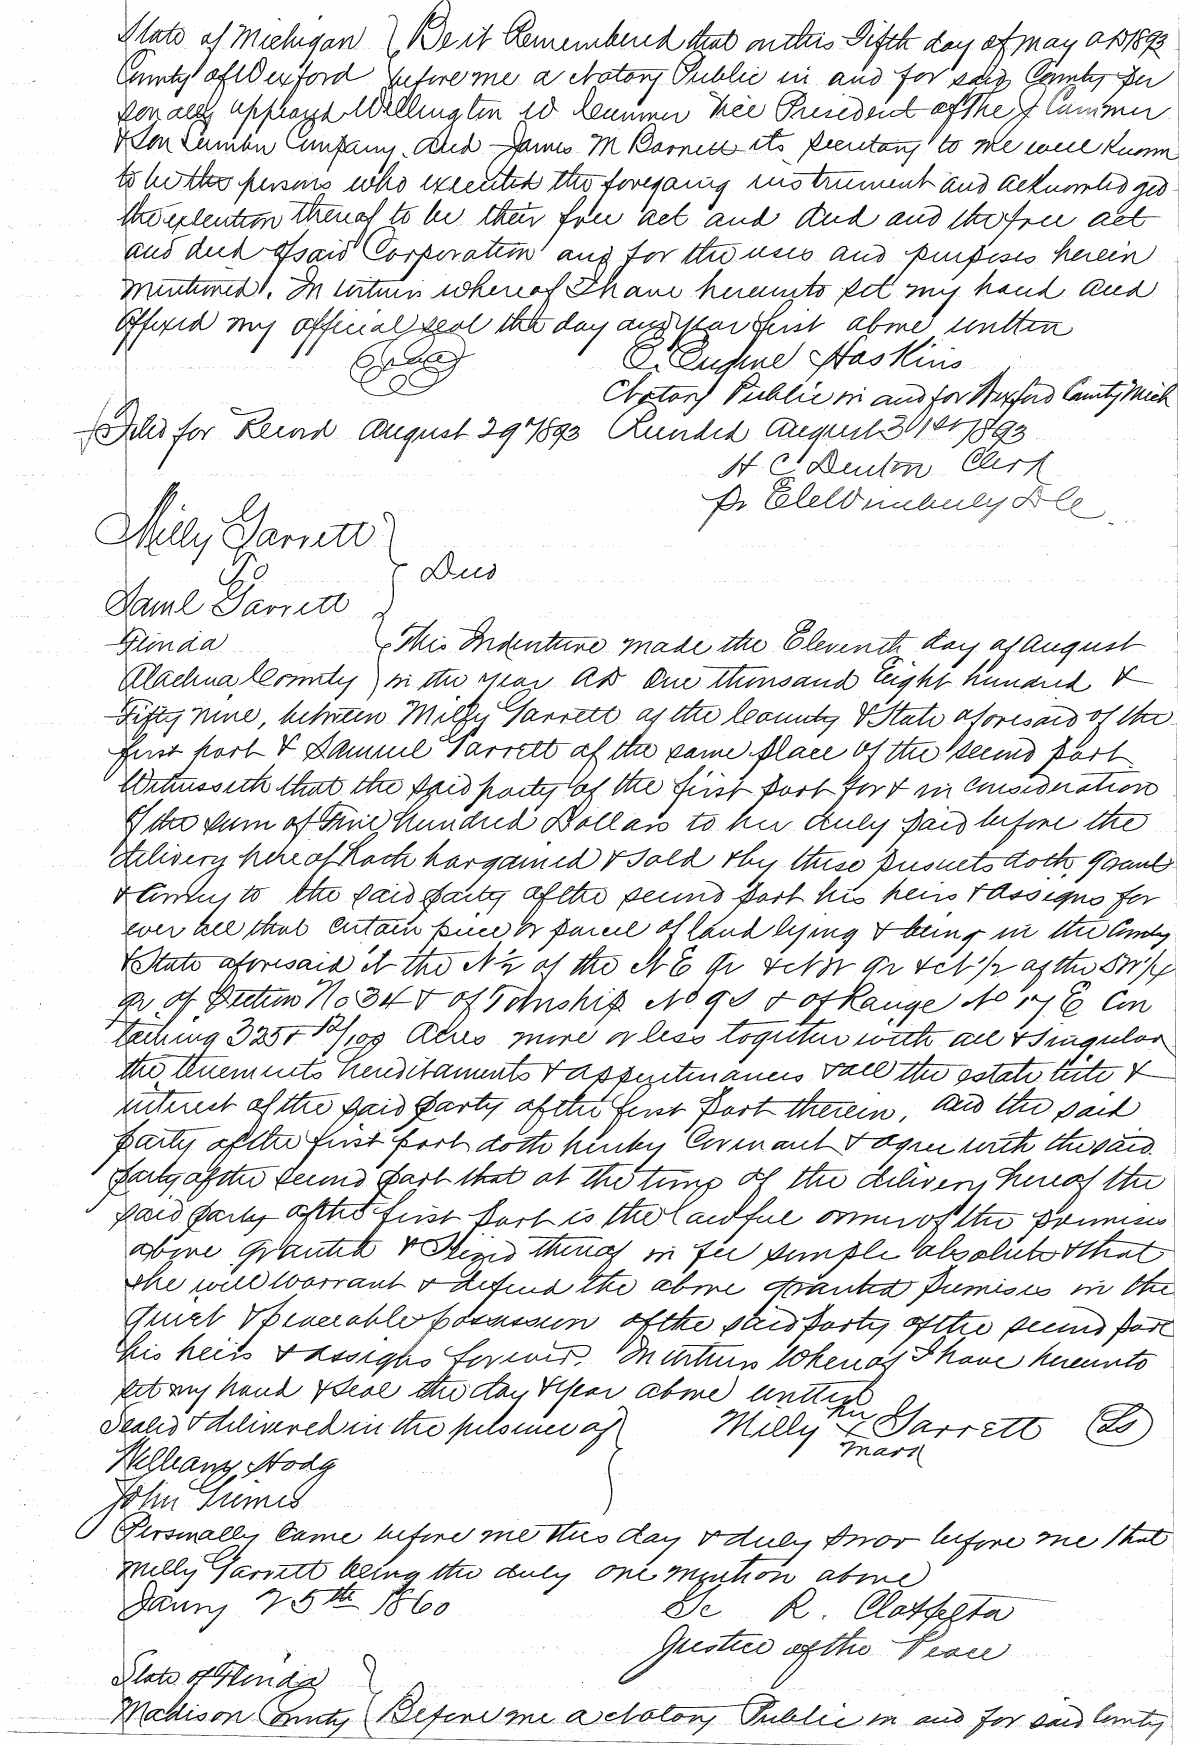 State of Michigan } Be it Remembered that on this Fifth day of May AD 1893
County of Wexford } before me a Notary Public in and for said County per
sonally appeared Wellington W Cummer Vice President of the J Cummer
& Son Lumber Company and James M Barnett its Secretary to me well Known
to be the persons who executed the foregoing instrument and acknowledged
the execution thereof to be their free act and deed and the free act
and deed of said Corporation and for the uses and purposes herein
mentioned. In witness whereof I have hereunto set my hand and
affixed my official seal the day and year first above written
E. Eugene Haskins
Notary Public in and for Wexford County Mich
Filed for Record August 29th 1893 Recorded August 31st 1893
H C Denton Clerk
pr Wimberly D C
Milly Garrett }
To } Deed
Saml Garrett }
Florida } This Indenture made the Eleventh day of August
Alachua County } in the year AD One thousand Eight hundred &
Fifty nine, between Milly Garrett of the County & State aforesaid of the
first part & Samuel Garrett of the same place of the second part
Witnesseth that the said party of the first part for & in consideration
of the sum of Five hundred Dollars to her duly paid before the
delivery hereof hath bargained & sold & by these presents doth grant
& convey to the said party of the second part his heirs & assigns for
ever all that certain piece or parcel of land lying & being in the County
& State aforesaid it the N 1/2 of the N E qr & N W qr & N 1/2 of the S W 1/4
qr of Section No 34 & of Township No 9 S & of Range No 17 E Con
taining 325 & 12/100 Acres more or less together with all & singular
the tenements hereditaments & appurtenances & all the estate title &
interest of the said party of the first part therein, and the said
party of the first part doth hereby Covenant & agree with the said
party of the second part that at the time of the delivery hereof the
said party of the first part is the lawful owner of the premises
above granted & Seized thereof in fee simple absolute & that
she will warrant & defend the above granted premises in the
quiet & peaceable possession of the said party of the second part
his heirs & assigns forever. In witness whereof I have hereunto
set my hand & seal the day & year above written
Sealed & delivered in the presence of } Milly her x mark Garrett (LS)
William Hodg
John Grimes
Personally came before me this day & duly swor before me that
Milly Garrett being the duly one mention above
Janry 25th 1860
R.
Justice of the Peace
State of Florida }
Madison County } Before me a Notary Public in and for said County